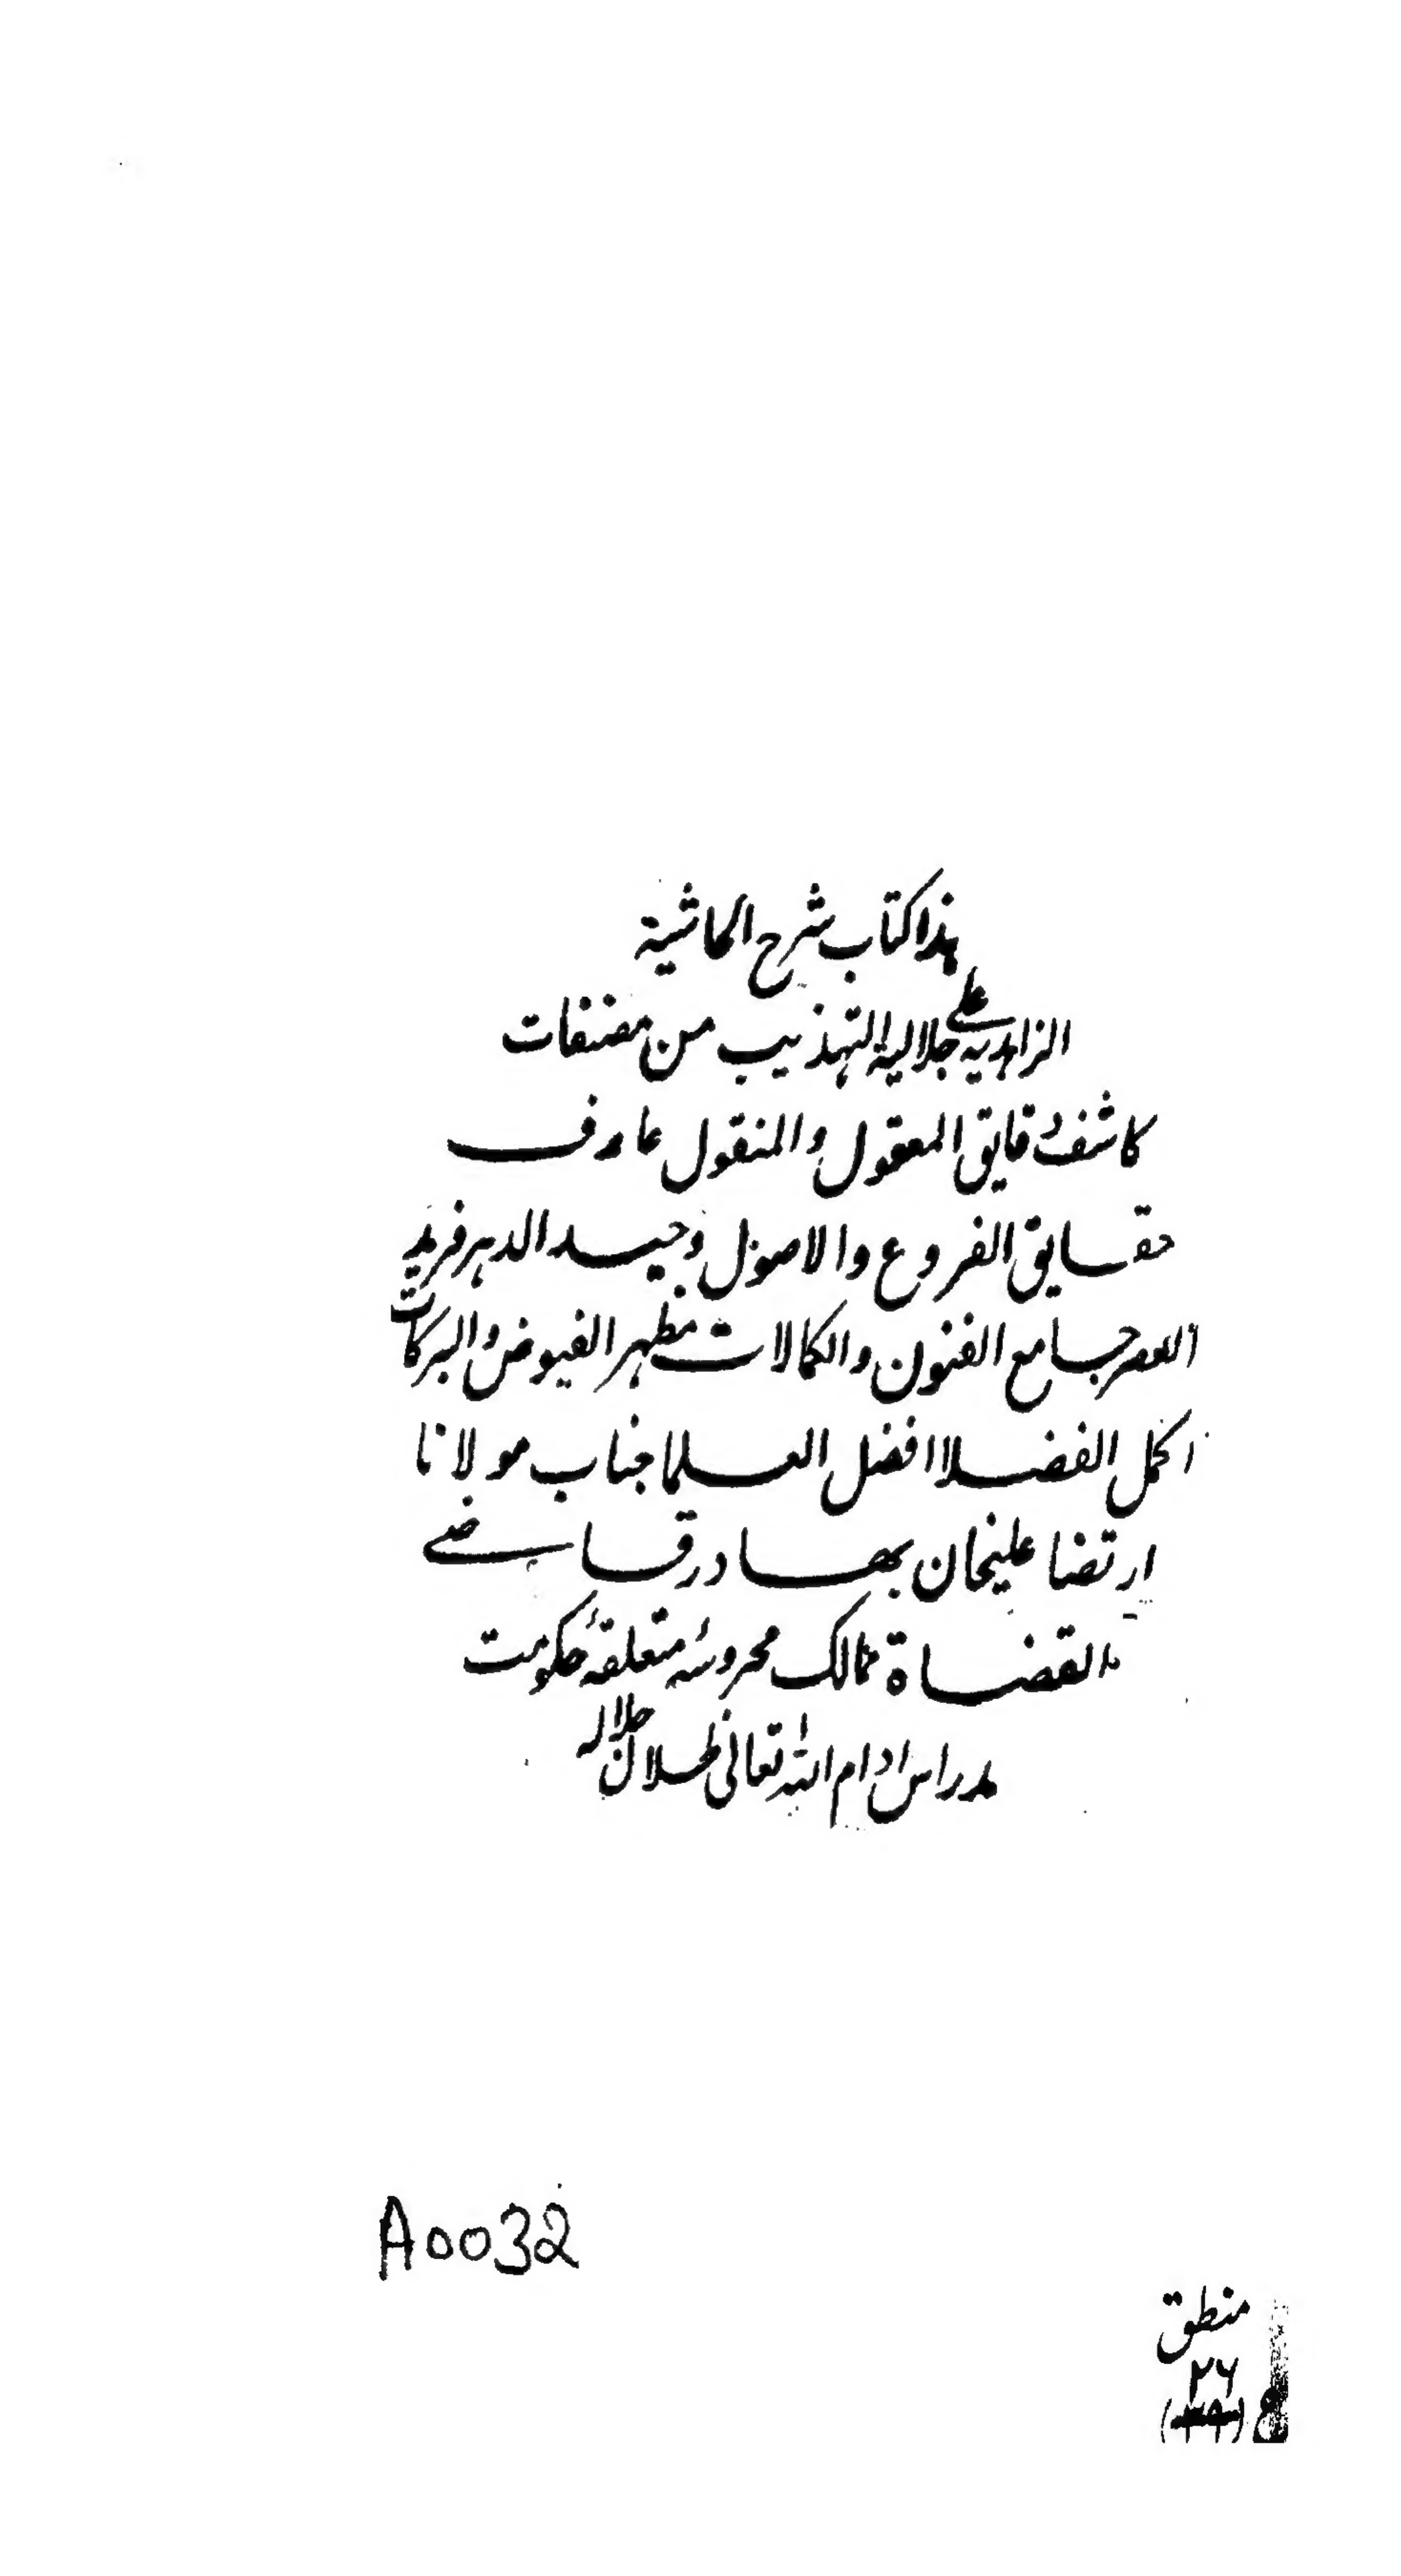 هذا كتاب شرح الحاشية
الزاهدية على جلالية التهذيب من مصنفات
كاشف دقايق المعقول والمنقول عارف
حقايق الفروع والاصول وحيد الدهر فريد
العصر جامع الفنون والكمالات مظهر الفيوض والبركات
اكمل الفضلا افضل العلما جناب مولانا
ارتضا عليخان بهادر قاضے
القضاة ممالک محروسۂ متعلقۂ حکومت
مدراس ادام الله تعالى ظلال جلاله
A0032
منطق
٢٦